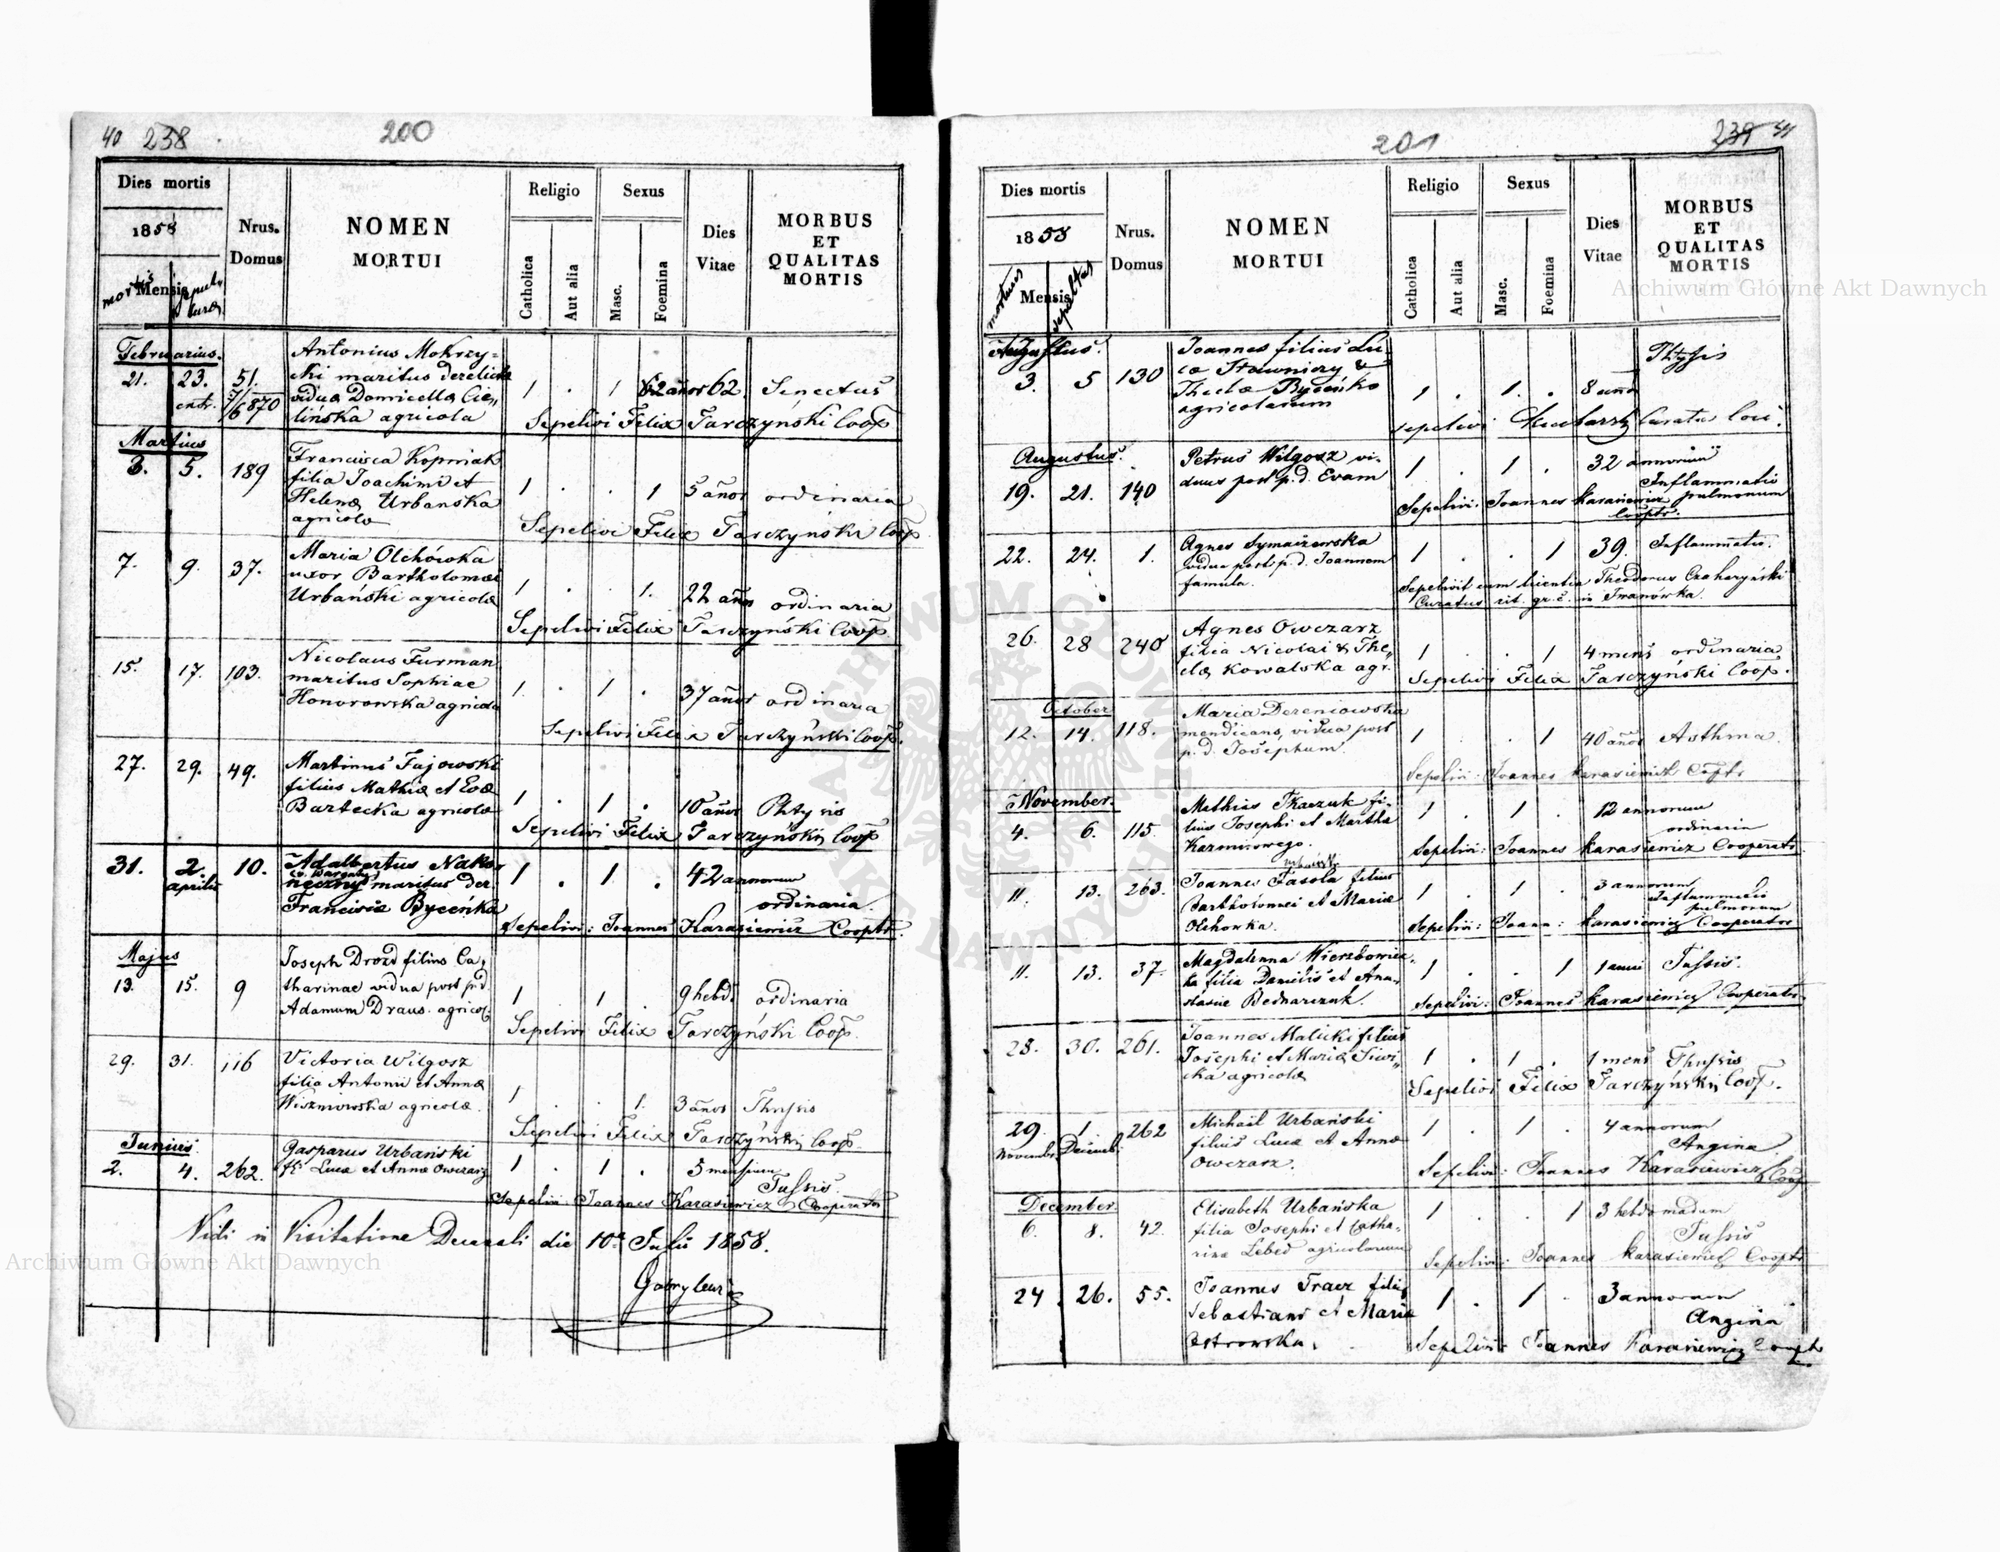 40 238 200
Dies mortis
1858
mortis Mensis sepulturæ
Nrus. Domus
NOMEN MORTUI
Religio
Catholica
Aut alia
Sexus
Masc.
Foemina
Dies Vitae
MORBUS ET QUALITAS MORTIS
Februarius.
Antonius Mokrzy=
cki maritus derelictæ
viduæ Domicellæ Cie=
lińska agricola
21. 23. 51. 1 . 1 62 años 62. Senectus
extr. 6870
Sepelivi Felix Tarczyński Coop
Martius
Francisca Kopniak
filia Joachimi et
Helenæ Urbanska
agricolæ
3. 5. 189 1 . . 1 5 años ordinaria
Sepelivi Felix Tarczyński Coop
Maria Olchówka
uxor Bartholomæi
Urbański agricolæ
7. 9. 37. 1 . . 1. 22 años ordinaria
Sepelivi Felix Tarczyński Coop.
Nicolaus Furman
maritus Sophiae
Honorowska agricola
15. 17. 103. 1. . 1 . 37 años ordinaria
Sepelivi Felix Tarczyński Coop.
Martinus Fajowski
filius Mathiæ et Evæ
Bartecka agricolæ
27. 29. 49. 1 . 1 . 10 años Phtysis
Sepelivi Felix Tarczyński Coop
Adalbertus Nako=
neczny maritus der.
Franciscæ Byceńka
31. 2. aprilis 10. 1 . 1 . 42 annorum
ordinaria.
Sepelivi: Joannes Karasiewicz Cooptr.
Majus
Joseph Drozd filius Ca=
tharinae vidua post p.d.
Adamum Draus. agricol.
13. 15. 9 1 . 1 . 9 hebd. ordinaria
Sepelivi Felix Tarczyński Coop.
Victoria Wilgosz
filia Antonii et Annæ
Wiszniowska agricolæ.
29. 31. 116 1 . . 1. 3 años Thussis
Sepelivi Felix Tarczyński Coop.
Junius
Gasparus Urbański
fil. Lucæ et Annæ Owczarz
2. 4. 262. 1 . 1 . 5 mensium
Tussis.
Sepelivi: Joannes Karasiewicz Cooperator
Vidi in Visitatione Decanali die 10a Julii 1858.
201 239 41
Dies mortis
1858
mortuus Mensis sepultus
Nrus. Domus
NOMEN MORTUI
Religio
Catholica
Aut alia
Sexus
Masc.
Foemina
Dies Vitae
MORBUS ET QUALITAS MORTIS
Augustus.
Joannes filius Lu=
cæ Stawniczy &
Theclæ Byceńko
agricolarum
3. 5 130 1 . 1. . 8 año Phtysis
sepelivi Curatus loci.
Augustus.
Petrus Wilgosz vi-
duus post p.d. Evam
19. 21. 140 1 . 1 . 32 annorum
Inflammatio
pulmonum
Sepelivi: Joannes Karasiewicz
Cooptr.
Agnes Symaizewska
vidua post p.d. Joannem
famula.
22. 24. 1. 1 . . 1 39. Inflammatio.
Sepelivit cum licentia Theodorus Czaharyński
Curatus rit. gr. c. in Iwanówka.
Agnes Owczarz
filia Nicolai & The=
clæ Kowalska agr.
26. 28 240 1 . . 1 4 mens ordinaria
Sepelivi Felix Tarczyński Coop.
October
Maria Dereniowska
mendicans, vidua post
p.d. Josephum.
12. 14. 118. 1 . . 1 40 años Asthma.
Sepelivi: Joannes Karasiewicz Cooptr
November.
Mathias Tkaczuk fi-
lius Josephi et Martha
Kazmirowego.
4. 6. 115. 1 . 1 . 12 annorum
ordinaria
Sepelivi: Joannes Karasiewicz Cooperatr
Joannes Fasola filius
Bartholomei et Mariæ
Olchowka.
11. 13. 263. 1 . 1 . 3 annorum
Inflammatio
pulmonum
Sepelivi: Joann: Karasiewicz Cooperator
Magdalenna Wierzbowiec=
ka filia Danielis et Ana=
stasiæ Bednarczuk.
11. 13. 37. 1 . . 1 1 anni Tussis.
Sepelivi: Joannes Karasiewicz Cooperator.
Joannes Malicki filius
Josephi et Mariæ Siwi=
cka agricolæ
28. 30. 261. 1 . 1 . 1 mens Thussis
Sepelivi Felix Tarczyński Coop.
Michaël Urbański
filius Lucæ et Annæ
Owczarz.
29. Novembr. 1 Decemb. 262 1 . 1 . 4 annorum
Angina
Sepelivi: Joannes Karasiewicz Coop
December.
Elisabeth Urbańska
filia Josephi et Catha=
rinæ Lebed agricolarum
6. 8. 42. 1 . . 1 3 hebdomadum
Tussis
Sepelivi: Joannes Karasiewicz Cooptr
Joannes Tracz filius
Sebastiani et Mariæ
Ostrowska.
24 26. 55. 1 . 1 . 3 annorum
Angina
Sepelivi: Joannes Karasiewicz Cooptr
Archiwum Główne Akt Dawnych
Archiwum Główne Akt Dawnych
ARCHIWUM GŁÓWNE AKT DAWNYCH